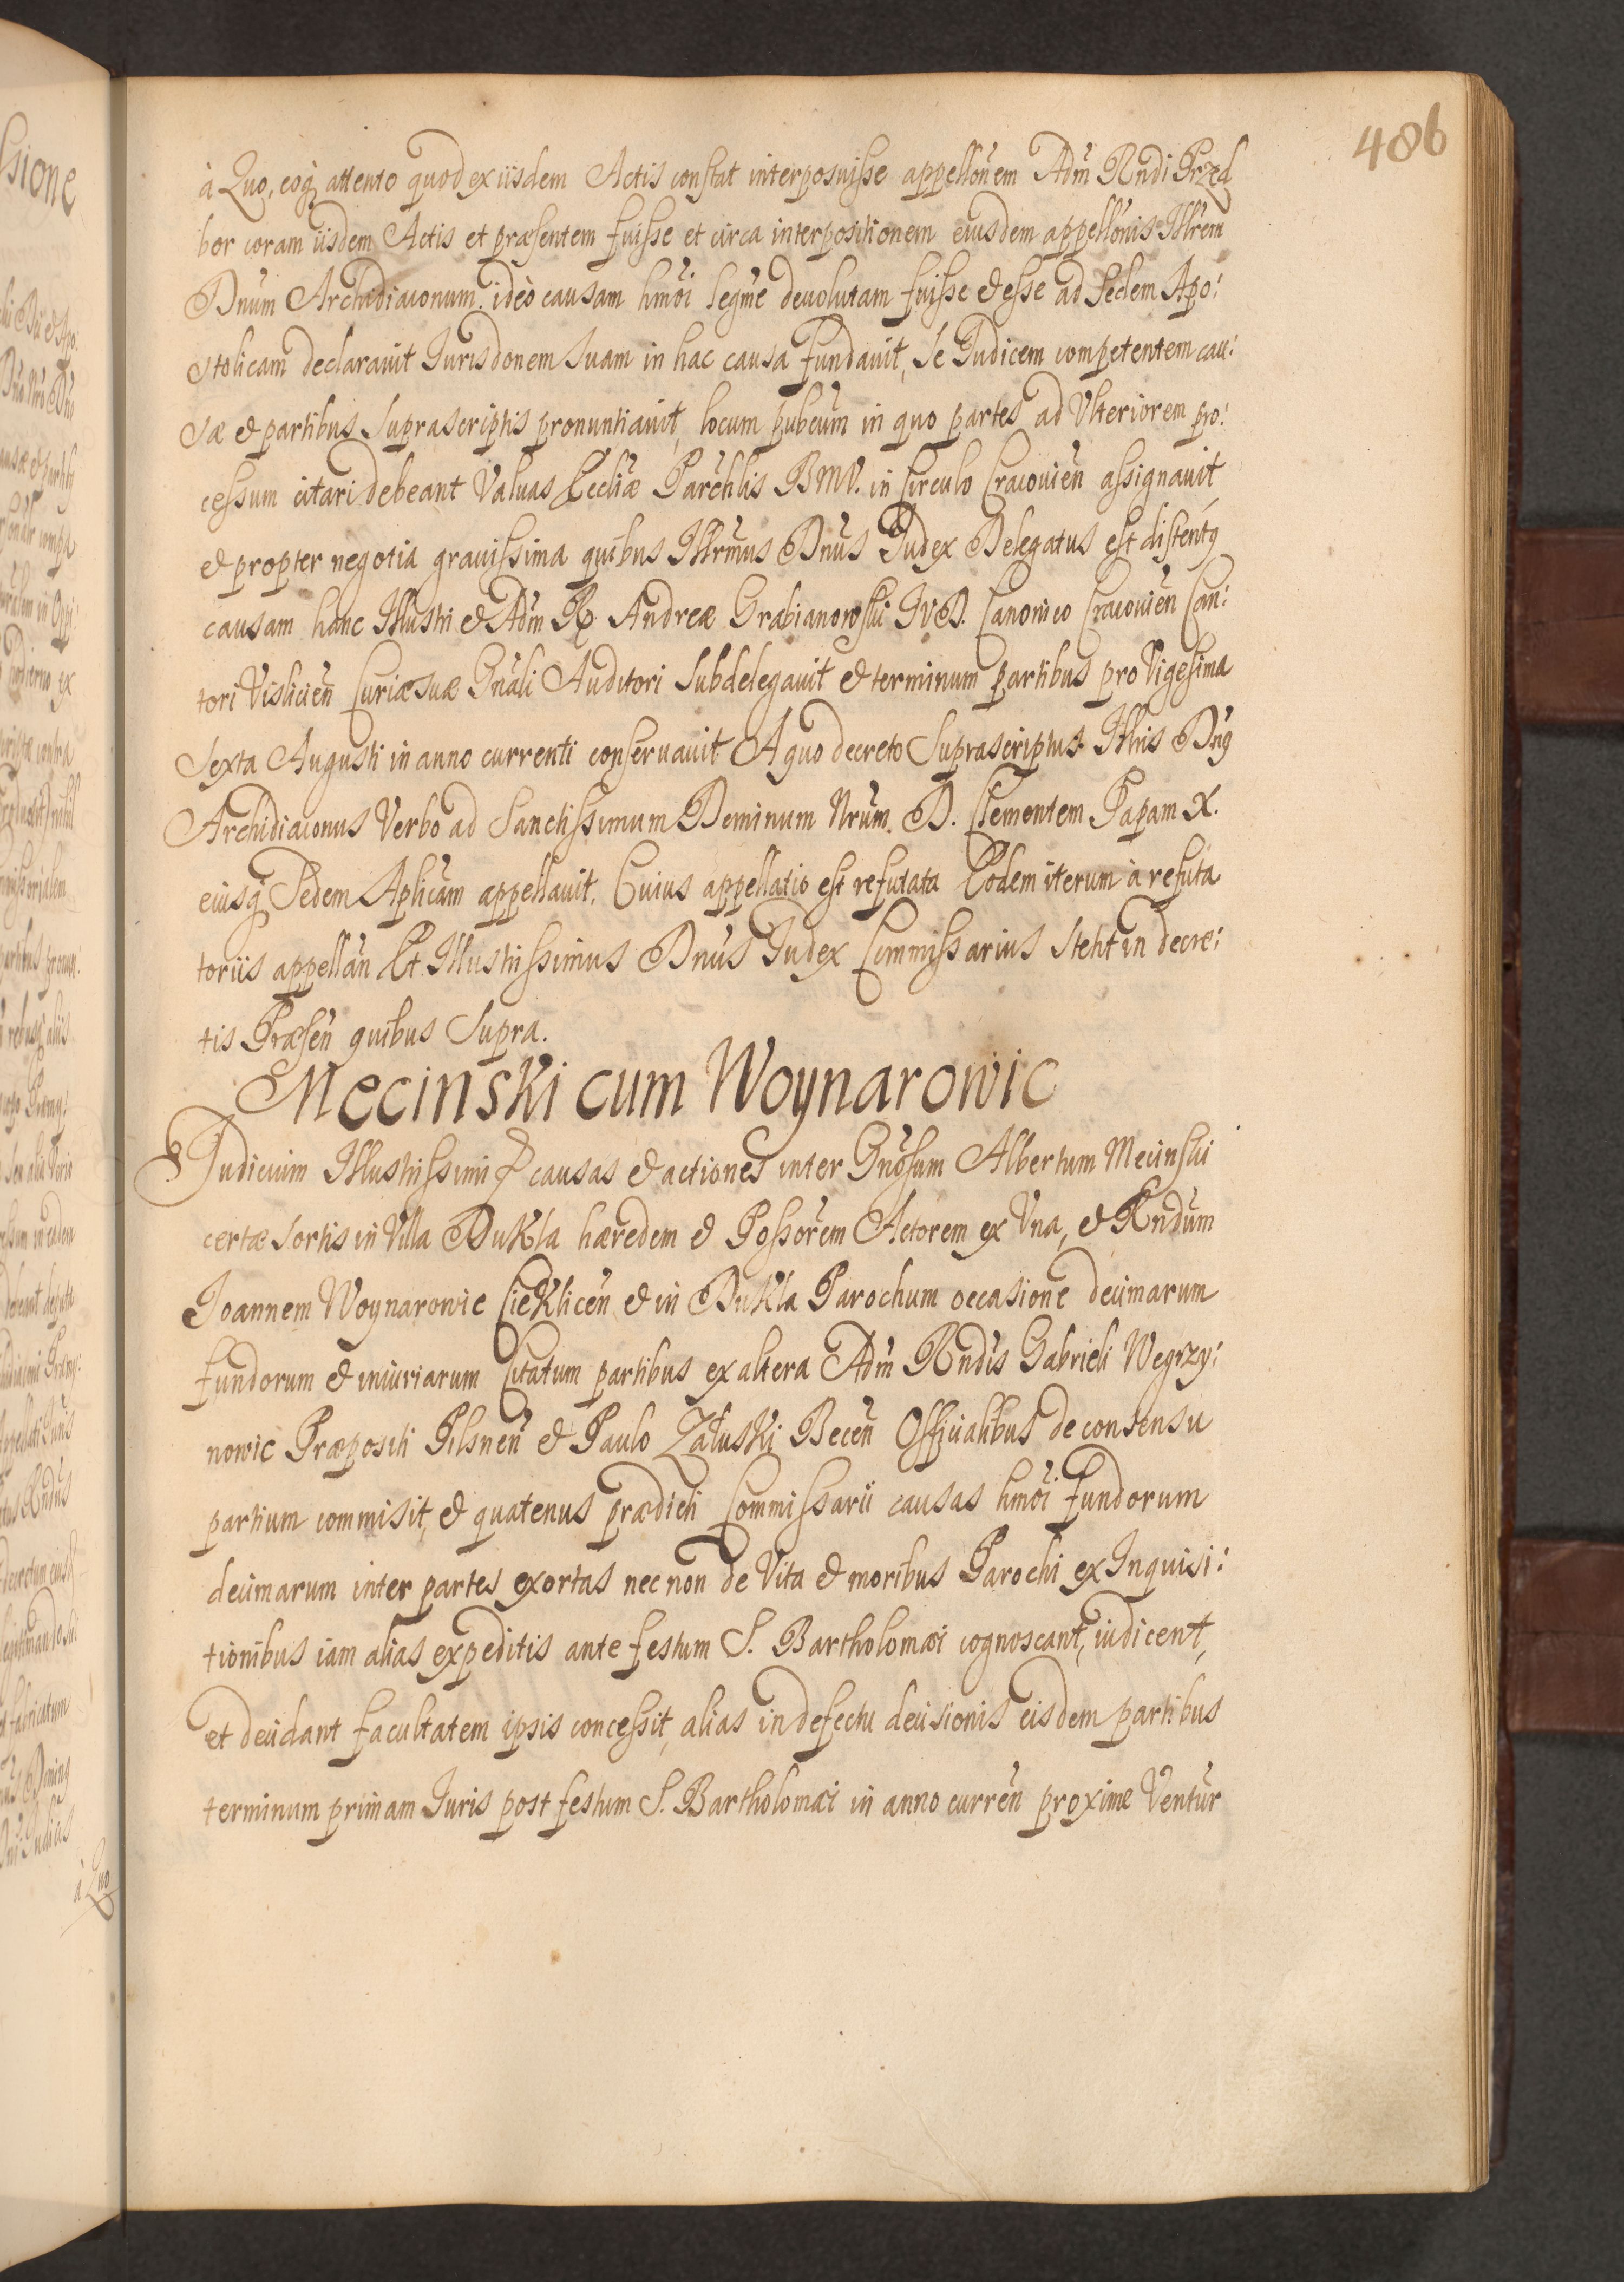 486
à Quo, eoq attento quod ex iisdem Actis constat interposuisse appellõnem Adm Rndi Przed
bor coram iisdem Actis et præsentem fuisse et circa interpositionem eiusdem appellõnis Illrem
Dnum Archidiaconum ideò causam hmõi legme devolutam fuisse & esse ad Sedem Apo:
stolicam declaravit Iurisdonem suam in hac causa fundavit, se Iudicem competentem cau:
sæ & partibus supra scriptis pronuntiavit, locum pubcum in quo partes ad Ulteriorem pro:
cessum citari debeant Valvas Eccliæ Parchlis BMV. in Circulo Cracovien assignavit
& propter negotia gravissima quibus Illrmus Dnus Iudex Delegatus est distentq
causam hanc Illustri & Adm R. Andreæ Grabianowski IVD. Canonico Cracovien Can:
tori Vislicien Curiæ suæ Gnali Auditori Subdelegavit & terminum partibus pro Vigesima
Sexta Augusti in anno currenti conservavit A quo decreto Suprascriptus Illris Dnq
Archidiaconus Verbo ad Sanctissimum Dominum Nrum. D. Clementem Papam X.
eiusq Sedem Aplicam appellavit. Cuius appellatio est refutata Eodem iterum à refuta
toriis appellan Et Illustrissimus Dnus Iudex Commissarius stetit in decre:
tis Præsen quibus Supra.
Mecinski cum Woynarowic
Iudicium Illustrissimi causas & actiones inter Gnosum Albertum Mecinski
certæ sortis in Villa Dukla hæredem & Possorem Actorem ex Una, & Rndum
Joannem Woynarowic Cieklicen & in Dukla Parochum occasione decimarum
fundorum & iniuriarum Citatum partibus ex altera Adm Rndis Gabrieli Wegrzy:
nowic Præpositi Pilsnen & Paulo Załuski Becen Officialibus de consensu
partium commisit, & quatenus prædicti Commissarii causas hmõi fundorum
decimarum inter partes exortas nec non de Vita & moribus Parochi ex Inquisi:
tionibus iam alias expeditis ante festum S. Bartholomæi cognoscant, iudicent,
et decidant facultatem ipsis concessit, alias in defectu decisionis eisdem partibus
terminum primam Iuris post festum S. Bartholomæi in anno curren proxime Ventur